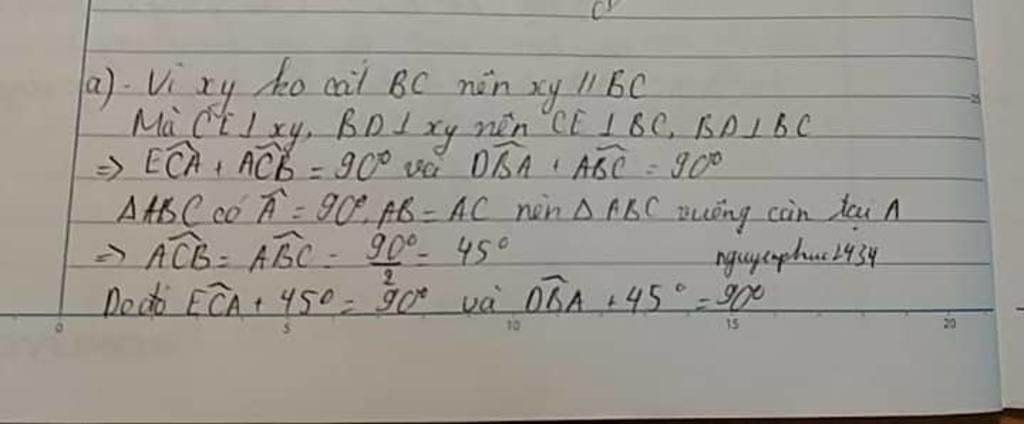 a). Vì xy ko cắt BC nên xy // BC
Mà CE ⊥ xy, BD ⊥ xy nên CE ⊥ BC, BD ⊥ BC
=> ECA + ACB = 90° và DBA + ABC = 90°
ΔABC có Â = 90°, AB = AC nên ΔABC vuông cân tại A
=> ACB = ABC = 90°/2 = 45°
nguyenphuc1434
Do đó ECA + 45° = 90° và DBA + 45° = 90°
0 5 10 15 20